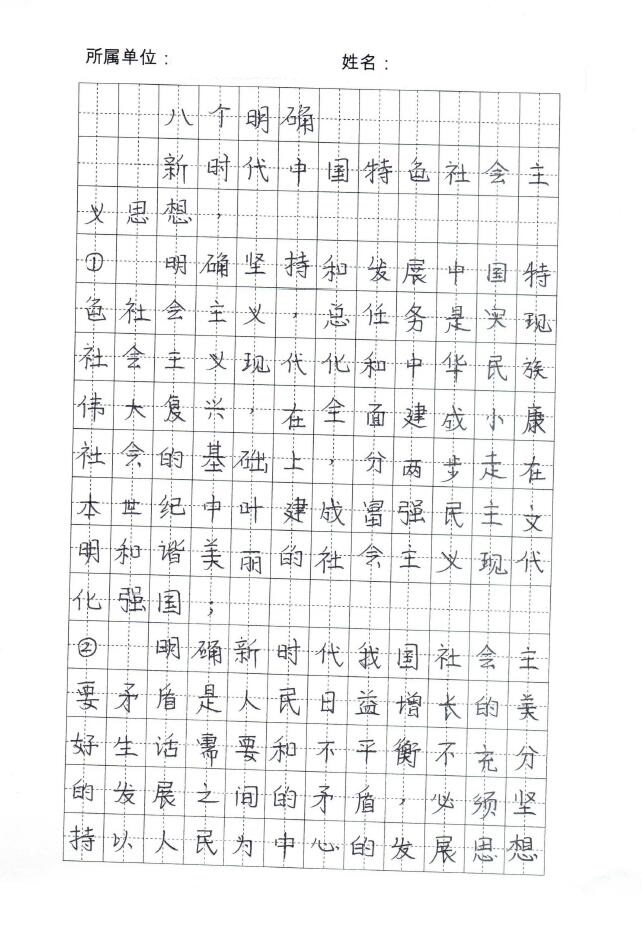 所属单位： 姓名：
八个明确
新时代中国特色社会主
义思想，
① 明确坚持和发展中国特
色社会主义，总任务是实现
社会主义现代化和中华民族
伟大复兴，在全面建成小康
社会的基础上，分两步走在
本世纪中叶建成富强民主文
明和谐美丽的社会主义现代
化强国；
② 明确新时代我国社会主
要矛盾是人民日益增长的美
好生话需要和不平衡不充分
的发展之间的矛盾，必须坚
持以人民为中心的发展思想